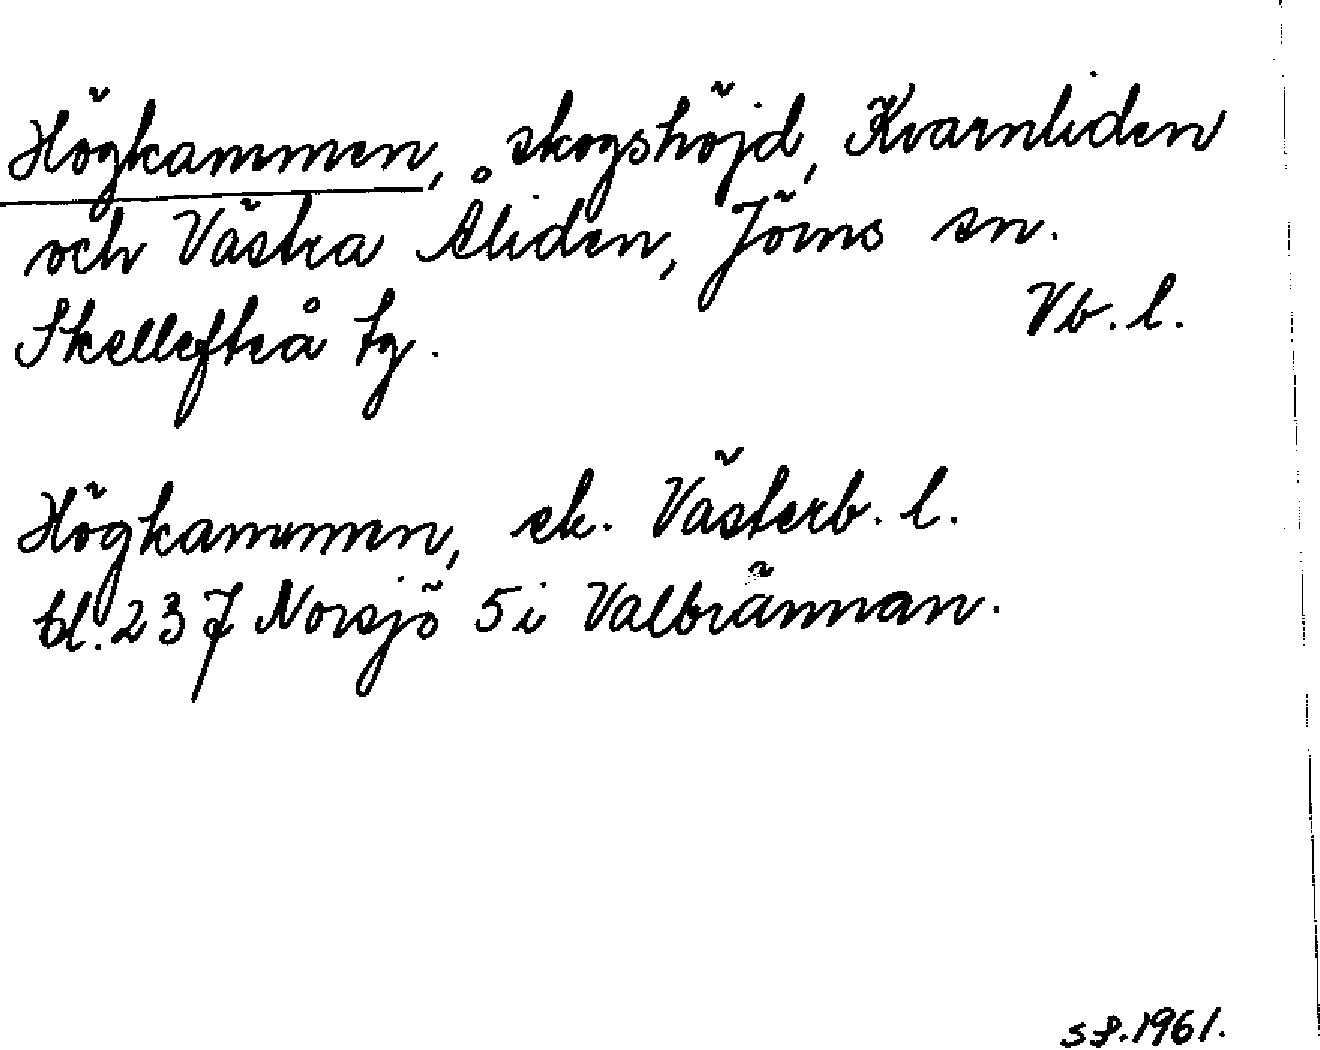 Högkammen, skogshöjd, Kvarnliden
och Västra Åliden, Jörns sn.
Skellefteå tg. Vb. l.
Högkammen, ek. Västerb. l.
bl. 237 Norsjö 5i Valbrännan.
S.P. 1961.